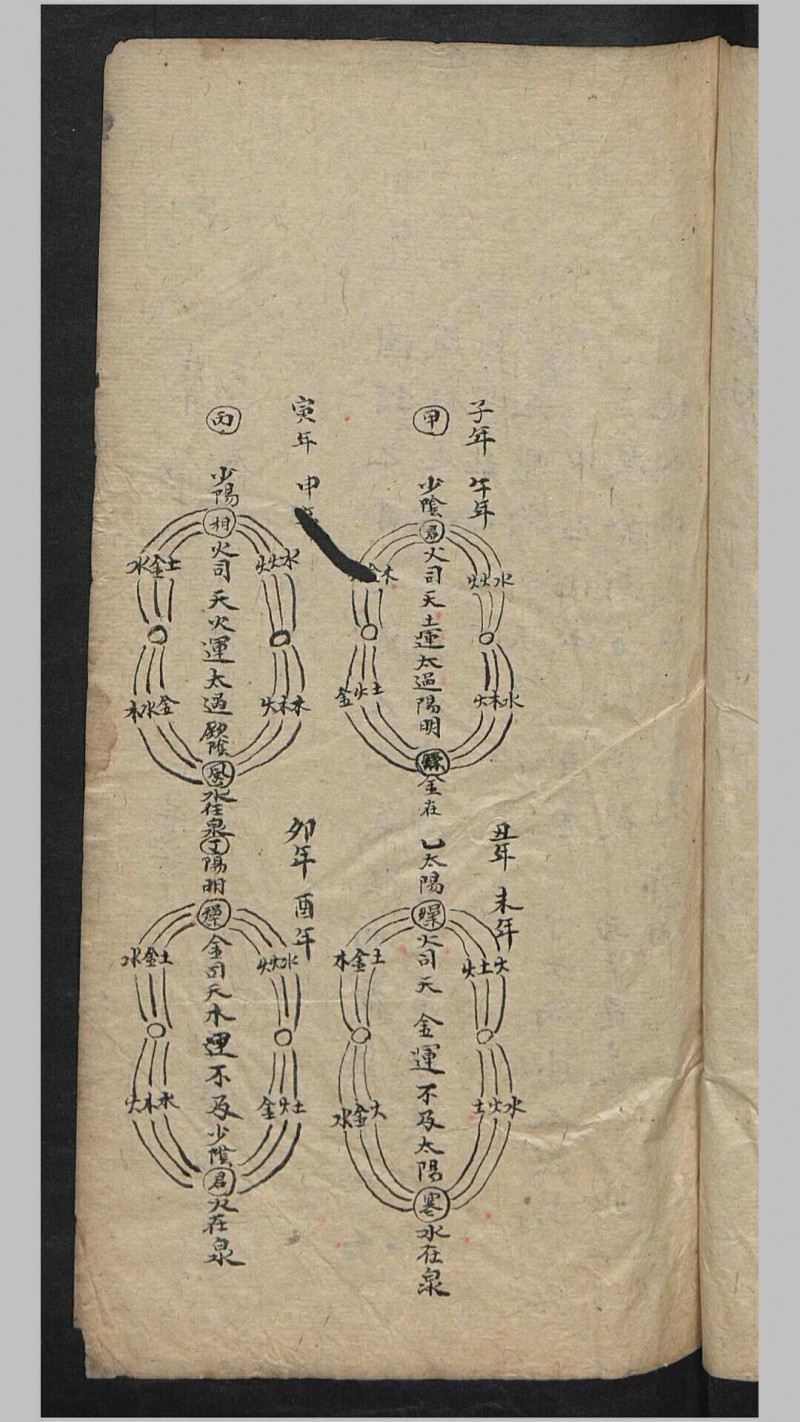 子年 午年
甲 少陰君火司天土運太過陽明燥金在
水火火
水木火
木金
土火金
丑年 未年
乙太陽燥火司天 金運不及太陽寒水在泉
火土火
水火土
土金木
火金水
寅年 申
丙 少陽相火司天火運太過厥陰風水在泉
水火火
木木火
土金水
金水木
卯年 酉年
丁陽明燥金司天木運不及少陰君火在泉
水火火
土火金
土金水
水木火